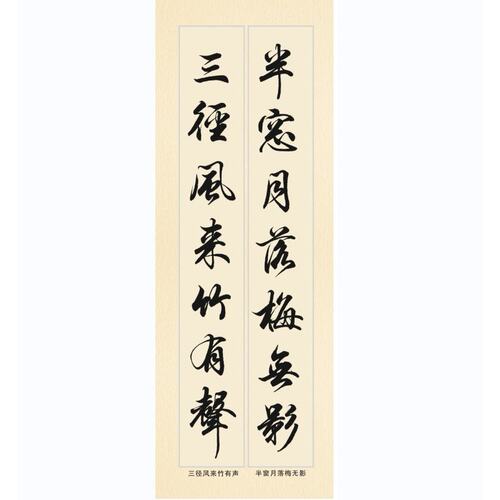 半窓月落梅無影
三徑風来竹有聲
半窗月落梅无影
三径风来竹有声